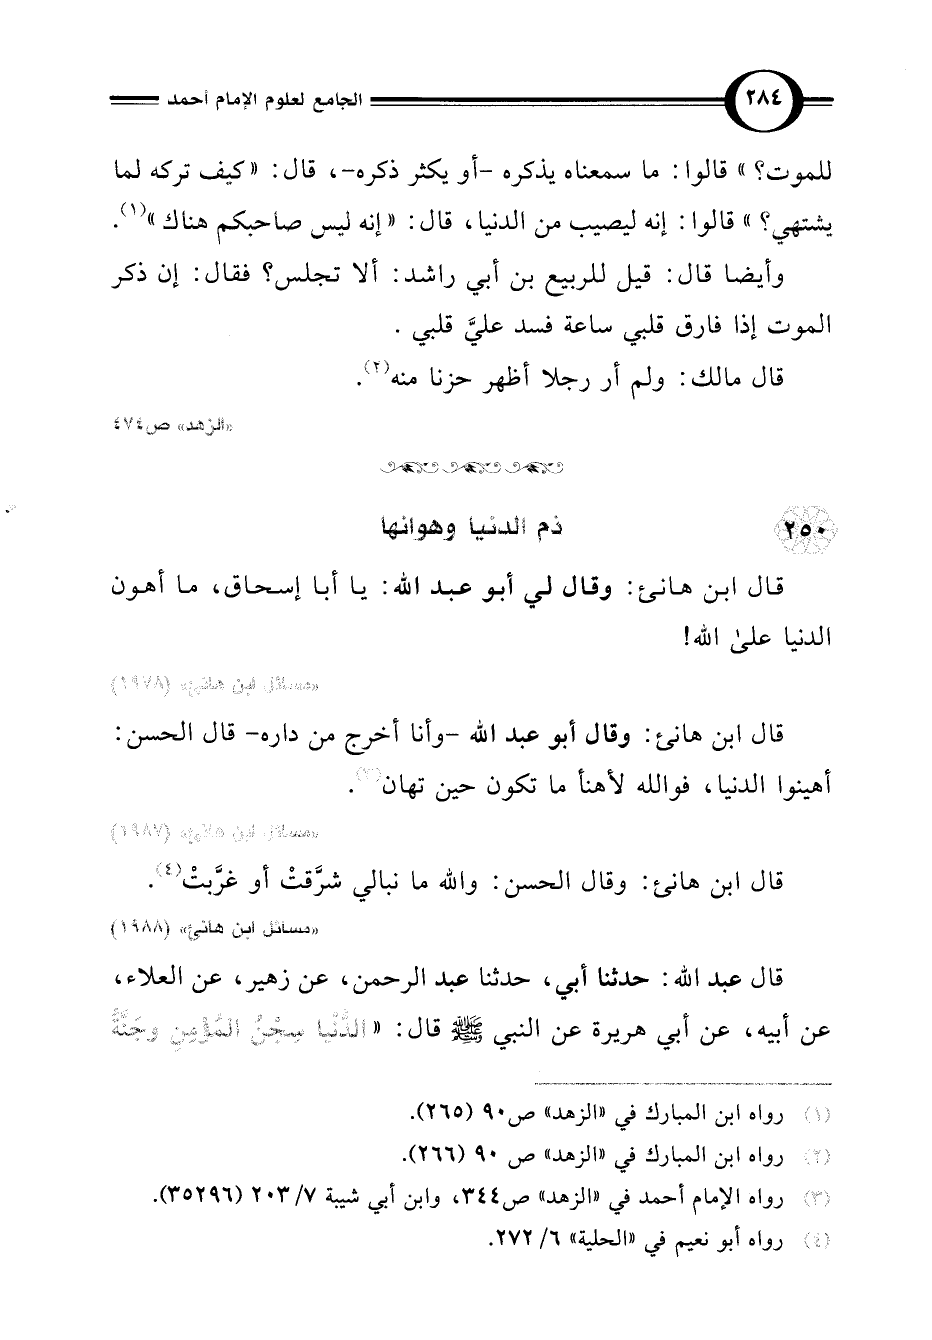 ٢٨٤ الجامع لعلوم الإمام أحمد
للموت؟ » قالوا: ما سمعناه يذكره -أو يكثر ذكره-، قال: « كيف تركه لما
يشتهي؟ » قالوا: إنه ليصيب من الدنيا، قال: « إنه ليس صاحبكم هناك »(١).
وأيضا قال: قيل للربيع بن أبي راشد: ألا تجلس؟ فقال: إن ذكر
الموت إذا فارق قلبي ساعة فسد عليَّ قلبي .
قال مالك: ولم أر رجلا أظهر حزنا منه(٢).
«الزهد» ص٤٧٤
٢٥٠ ذم الدنيا وهوانها
قال ابن هانئ: وقال لي أبو عبد الله: يا أبا إسحاق، ما أهون
الدنيا علىٰ الله!
«مسائل ابن هانئ» (١٩٧٨)
قال ابن هانئ: وقال أبو عبد الله -وأنا أخرج من داره- قال الحسن:
أهينوا الدنيا، فوالله لأهنأ ما تكون حين تهان(٣).
«مسائل ابن هانئ» (١٩٨٧)
قال ابن هانئ: وقال الحسن: والله ما نبالي شرَّقتْ أو غرَّبتْ(٤).
«مسائل ابن هانئ» (١٩٨٨)
قال عبد الله: حدثنا أبي، حدثنا عبد الرحمن، عن زهير، عن العلاء،
عن أبيه، عن أبي هريرة عن النبي ﷺ قال: « الدُّنْيا سِجْنُ المُؤْمِنِ وجَنَّةُ
(١) رواه ابن المبارك في «الزهد» ص٩٠ (٢٦٥).
(٢) رواه ابن المبارك في «الزهد» ص ٩٠ (٢٦٦).
(٣) رواه الإمام أحمد في «الزهد» ص٣٤٤، وابن أبي شيبة ٧/ ٢٠٣ (٣٥٢٩٦).
(٤) رواه أبو نعيم في «الحلية» ٦/ ٢٧٢.